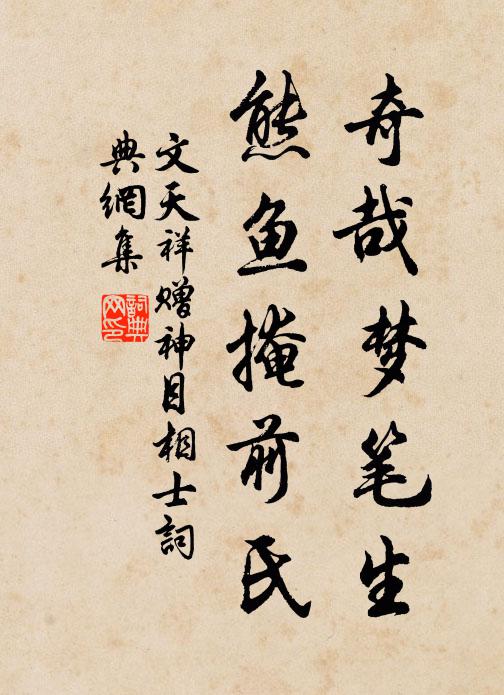 奇哉梦笔生
熊鱼掩前氏
文天祥赠神目相士詞
典網集
詞典网印